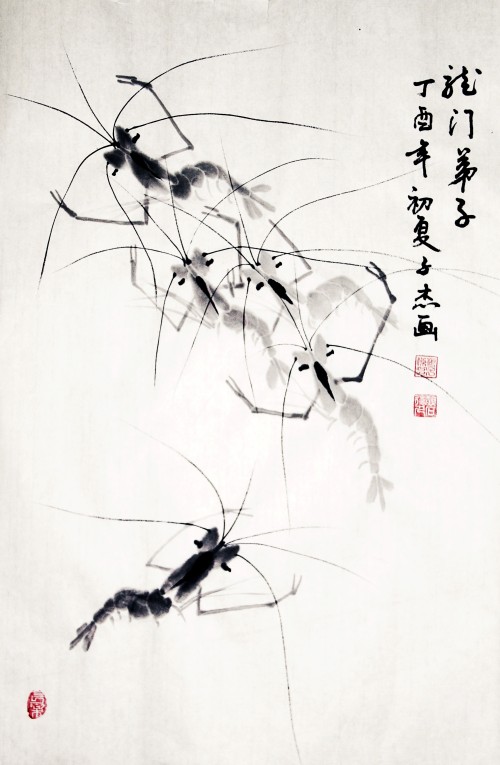 龙门弟子
丁酉年初夏子杰画